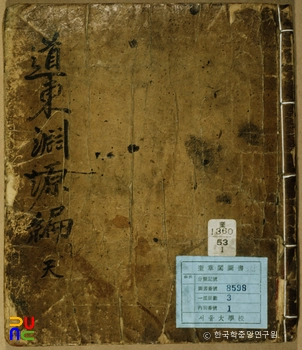 道東淵源編
天
1360
53
1
奎章閣圖書
8598
3
1
서울大學校
© 한국학중앙연구원